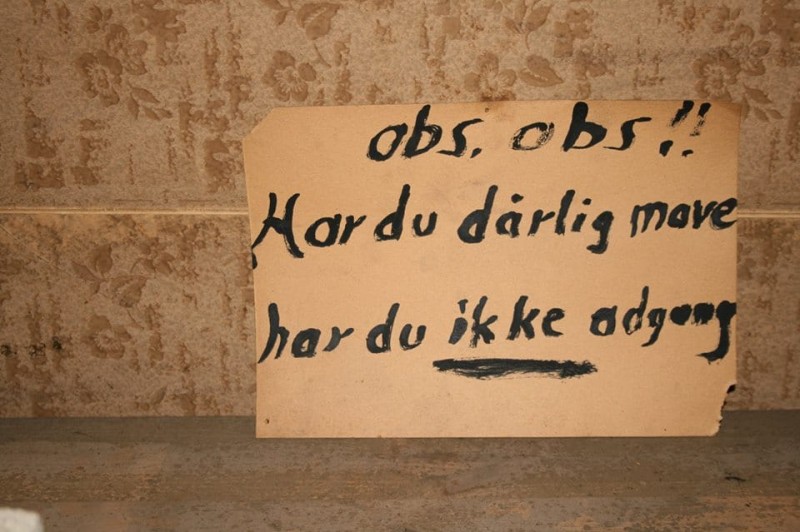 obs. obs!!
Har du dårlig mave
har du ikke adgang